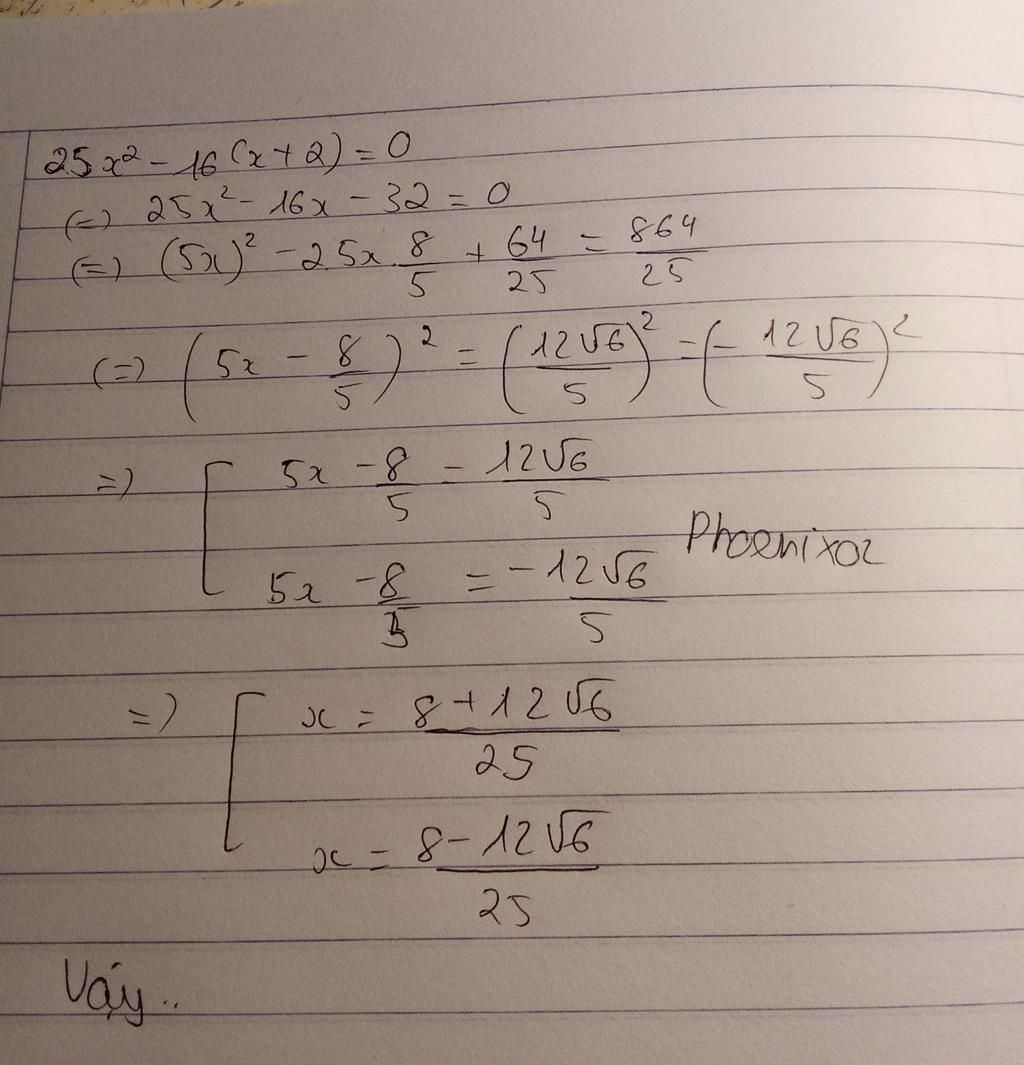 25x² - 16(x+2) = 0
(=) 25x² - 16x - 32 = 0
(=) (5x)² - 2.5x.8/5 + 64/25 = 864/25
(=) (5x - 8/5)² = (12√6/5)² = (-12√6/5)²
=) [ 5x - 8/5 = 12√6/5
Phoenixoz
5x - 8/5 = -12√6/5
=) [ x = 8+12√6/25
x = 8-12√6/25
Vậy..